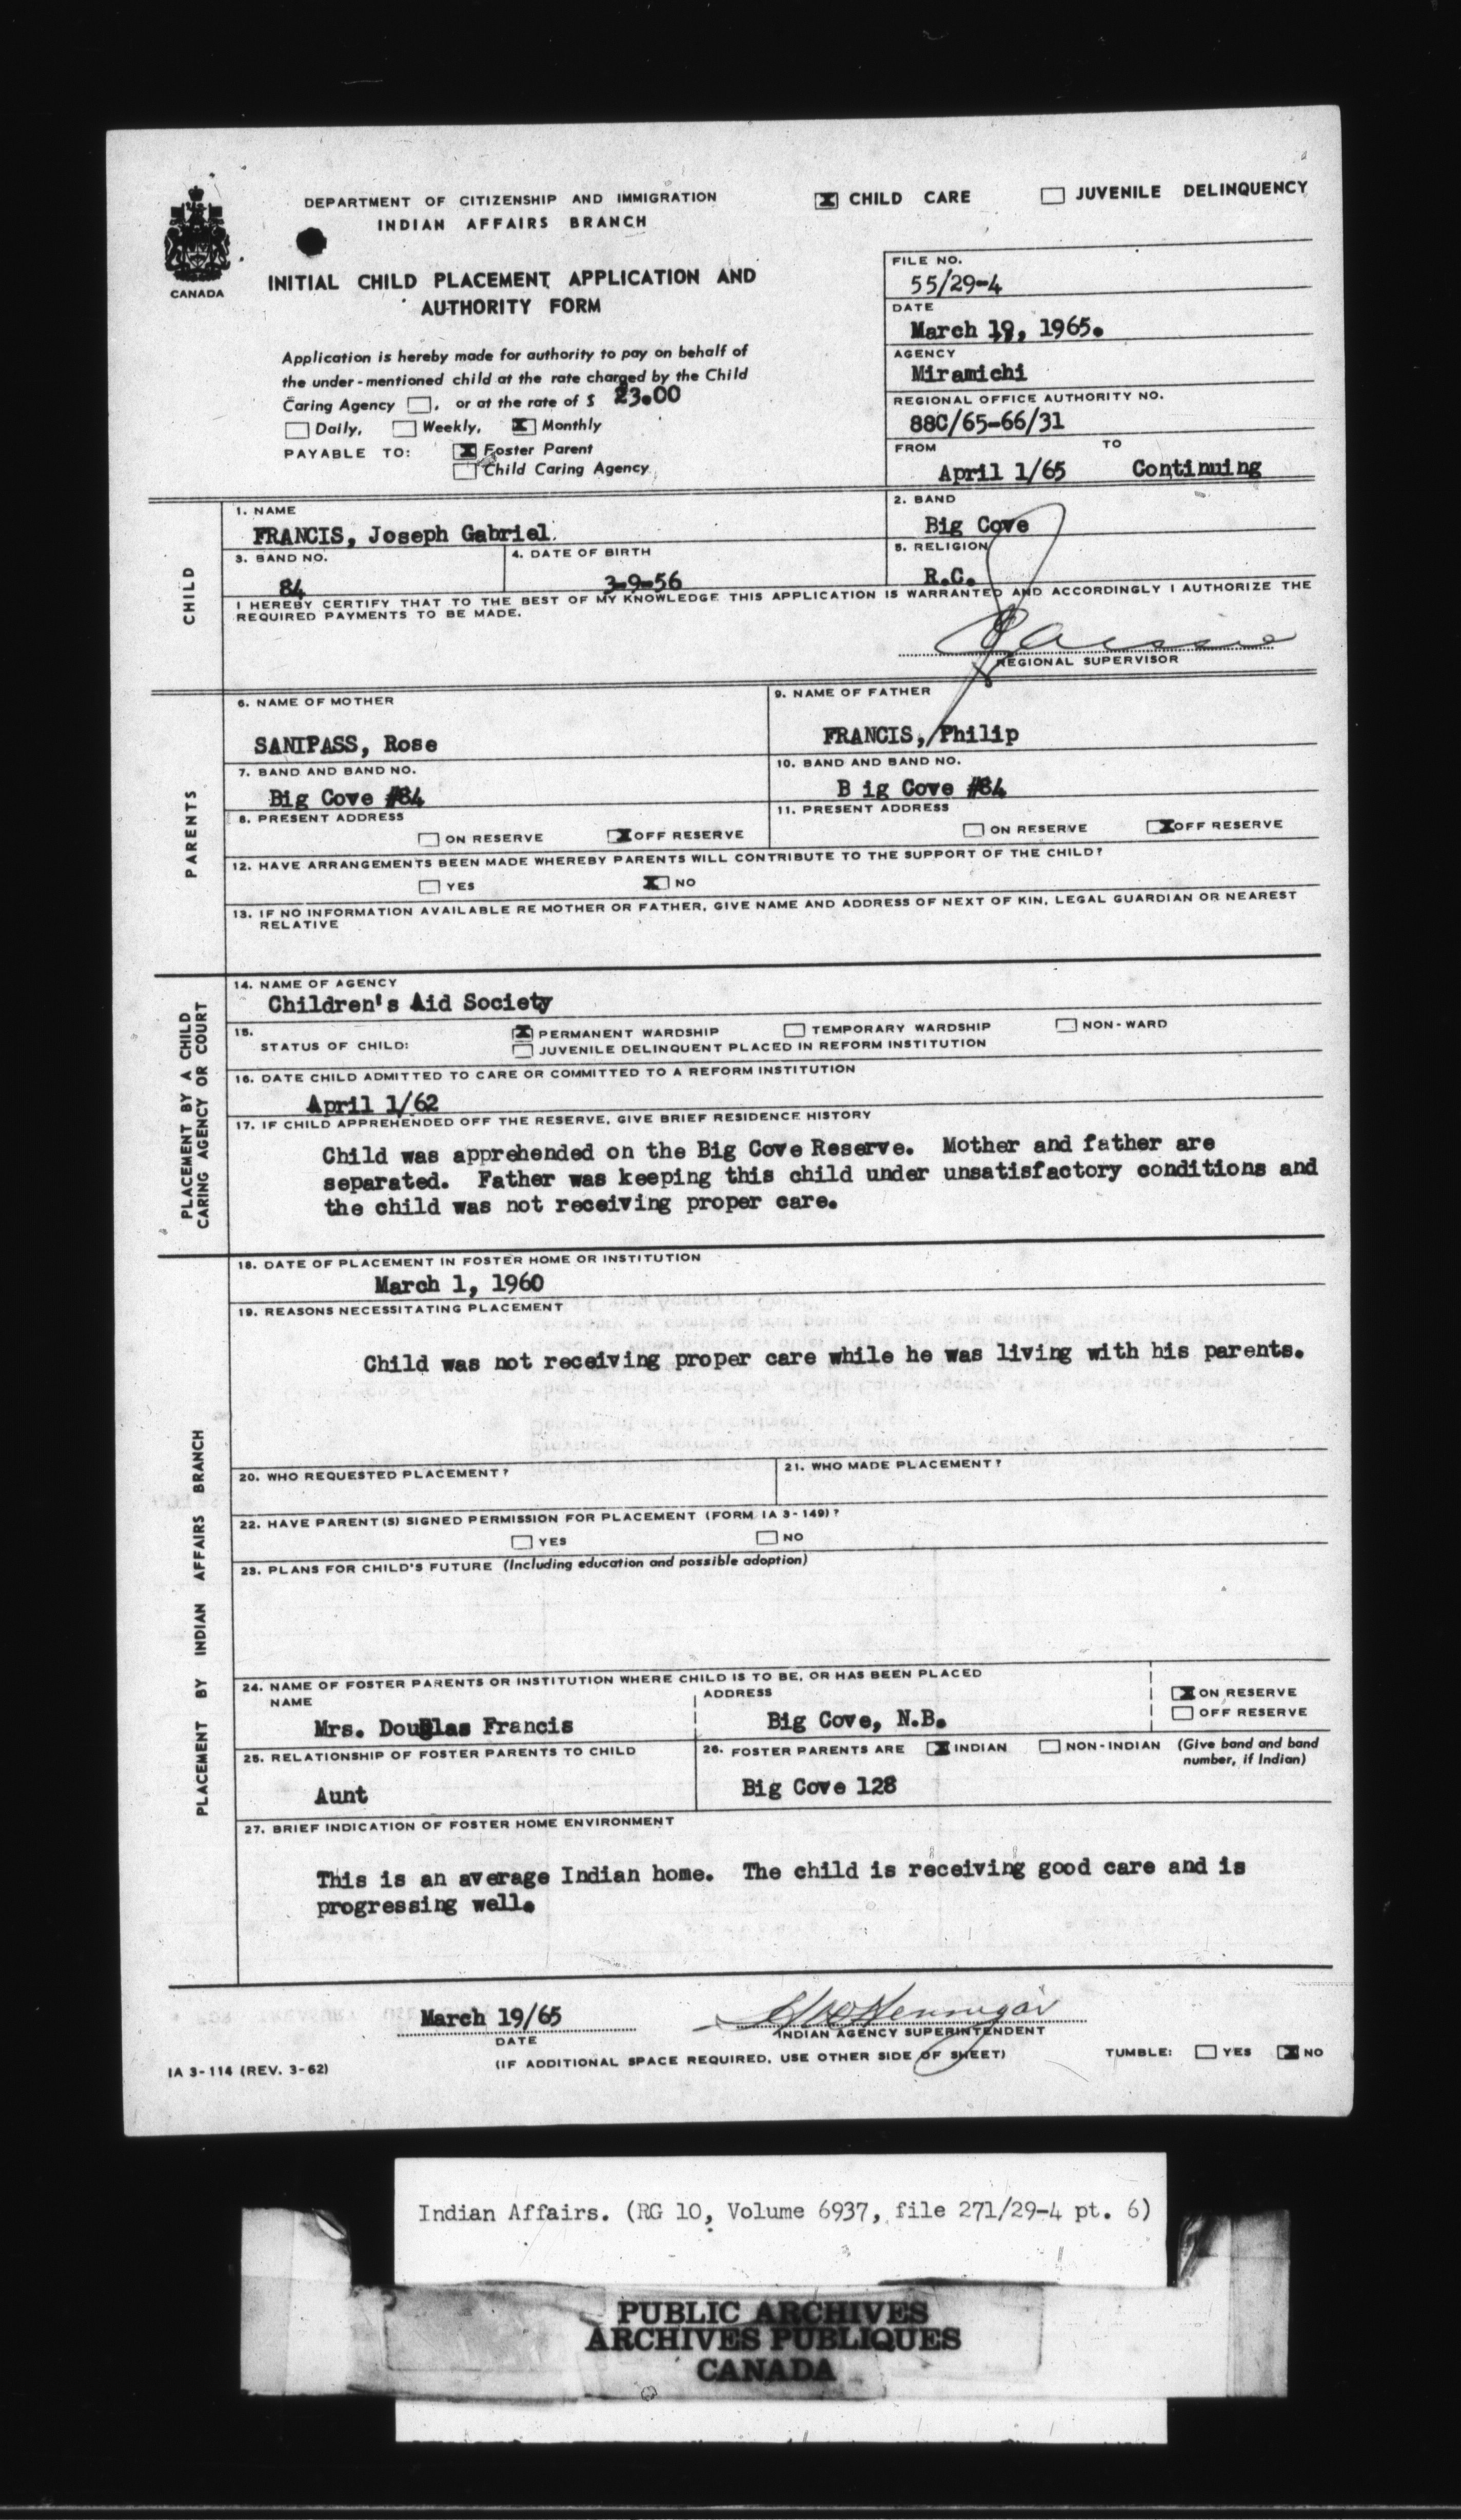 DEPARTMENT OF CITIZENSHIP AND IMMIGRATION
INDIAN AFFAIRS BRANCH
CANADA
INITIAL CHILD PLACEMENT APPLICATION AND
AUTHORITY FORM
X CHILD CARE
JUVENILE DELINQUENCY
Application is hereby made for authority to pay on behalf of
the under-mentioned child at the rate charged by the Child
Caring Agency , or at the rate of $ 23.00
Daily, Weekly, X Monthly
PAYABLE TO: X Foster Parent
Child Caring Agency
FILE NO.
55/29-4
DATE
March 19, 1965.
AGENCY
Miramichi
REGIONAL OFFICE AUTHORITY NO.
88C/65-66/31
FROM TO
April 1/65 Continuing
CHILD
1. NAME
FRANCIS, Joseph Gabriel.
2. BAND
Big Cove
3. BAND NO.
84
4. DATE OF BIRTH
3-9-56
5. RELIGION
R.C.
I HEREBY CERTIFY THAT TO THE BEST OF MY KNOWLEDGE THIS APPLICATION IS WARRANTED AND ACCORDINGLY I AUTHORIZE THE
REQUIRED PAYMENTS TO BE MADE.
REGIONAL SUPERVISOR
PARENTS
6. NAME OF MOTHER
SANIPASS, Rose
9. NAME OF FATHER
FRANCIS, Philip
7. BAND AND BAND NO.
Big Cove #84
10. BAND AND BAND NO.
B ig Cove #84
8. PRESENT ADDRESS
ON RESERVE X OFF RESERVE
11. PRESENT ADDRESS
ON RESERVE X OFF RESERVE
12. HAVE ARRANGEMENTS BEEN MADE WHEREBY PARENTS WILL CONTRIBUTE TO THE SUPPORT OF THE CHILD?
YES X NO
13. IF NO INFORMATION AVAILABLE RE MOTHER OR FATHER, GIVE NAME AND ADDRESS OF NEXT OF KIN, LEGAL GUARDIAN OR NEAREST
RELATIVE
PLACEMENT BY A CHILD
CARING AGENCY OR COURT
14. NAME OF AGENCY
Children's Aid Society
15. STATUS OF CHILD:
X PERMANENT WARDSHIP TEMPORARY WARDSHIP NON-WARD
JUVENILE DELINQUENT PLACED IN REFORM INSTITUTION
16. DATE CHILD ADMITTED TO CARE OR COMMITTED TO A REFORM INSTITUTION
April 1/62
17. IF CHILD APPREHENDED OFF THE RESERVE, GIVE BRIEF RESIDENCE HISTORY
Child was apprehended on the Big Cove Reserve. Mother and father are
separated. Father was keeping this child under unsatisfactory conditions and
the child was not receiving proper care.
PLACEMENT BY INDIAN AFFAIRS BRANCH
18. DATE OF PLACEMENT IN FOSTER HOME OR INSTITUTION
March 1, 1960
19. REASONS NECESSITATING PLACEMENT
Child was not receiving proper care while he was living with his parents.
20. WHO REQUESTED PLACEMENT?
21. WHO MADE PLACEMENT?
22. HAVE PARENT(S) SIGNED PERMISSION FOR PLACEMENT (FORM IA 3-149)?
YES NO
23. PLANS FOR CHILD'S FUTURE (Including education and possible adoption)
24. NAME OF FOSTER PARENTS OR INSTITUTION WHERE CHILD IS TO BE, OR HAS BEEN PLACED
NAME
Mrs. Douglas Francis
ADDRESS
Big Cove, N.B.
X ON RESERVE
OFF RESERVE
25. RELATIONSHIP OF FOSTER PARENTS TO CHILD
Aunt
26. FOSTER PARENTS ARE X INDIAN NON-INDIAN (Give band and band
number, if Indian)
Big Cove 128
27. BRIEF INDICATION OF FOSTER HOME ENVIRONMENT
This is an average Indian home. The child is receiving good care and is
progressing well.
March 19/65
DATE
INDIAN AGENCY SUPERINTENDENT
(IF ADDITIONAL SPACE REQUIRED, USE OTHER SIDE OF SHEET)
TUMBLE: YES X NO
IA 3-114 (REV. 3-62)
Indian Affairs. (RG 10, Volume 6937, file 271/29-4 pt. 6)
PUBLIC ARCHIVES
ARCHIVES PUBLIQUES
CANADA